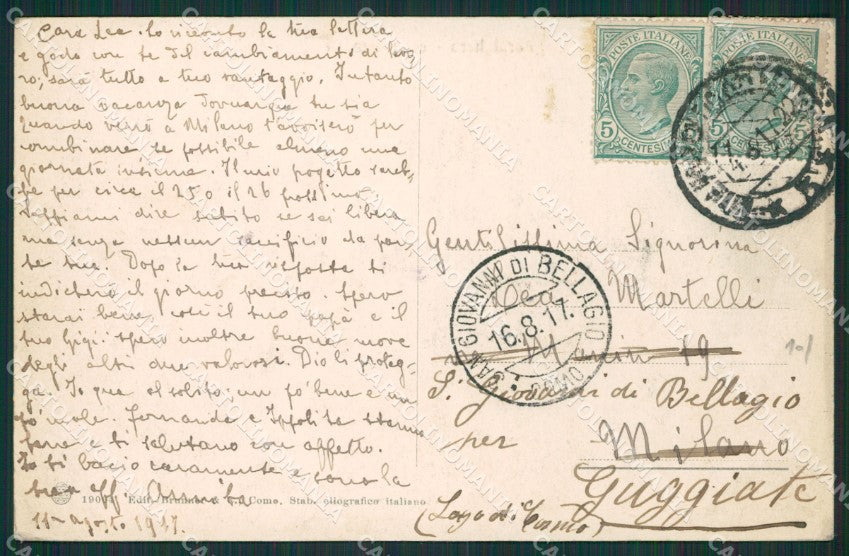 Cara Lea. Ho ricevuto la tua lettera
e godo con te del cambiamento di luo
go; sarà tutto a tuo vantaggio. Intanto
buona vacanza
Quando verrò a Milano t'avviserò per
combinare, se possibile almeno una
giornata insieme. Il mio progetto sareb
be per circa il 25 o il 26 prossimo.
Sappiami dire subito se sei libera
ma senza nessun sacrificio da par
te tua. Dopo la tua risposta ti
indicherò il giorno preciso. Spero
starai bene, così il tuo papà e il
tuo Gigi. Spero inoltre buone nuove
degli altri due valorosi. Dio li proteg
ga. Io qua al solito: un po' bene e un
po' male. Fernanda e Ippolita stanno
bene e ti salutano con affetto.
Io ti bacio caramente e sono la
tua aff.
11 - agosto 1917.
POSTE ITALIANE
5 CENTESIMI 5
POSTE ITALIANE
5 CENTESIMI 5
Gentilissima Signorina
Lea Martelli
Manin 19
S. Giovanni di Bellagio
per Milano
Guggiate
(Lago di Como)
SAN GIOVANNI DI BELLAGIO
16.8.17.
COMO
10/
Como, Stab. eliografico italiano
CARTOLINOMANIA